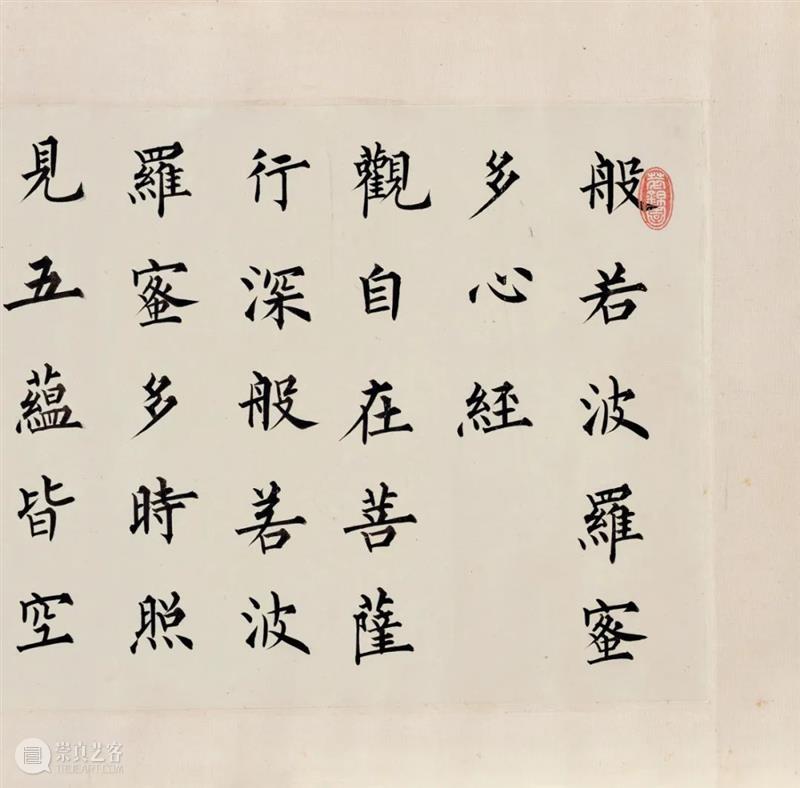 般若波羅蜜
多心經
觀自在菩薩
行深般若波
羅蜜多時照
見五蘊皆空
崇真艺客
TRUEART.COM